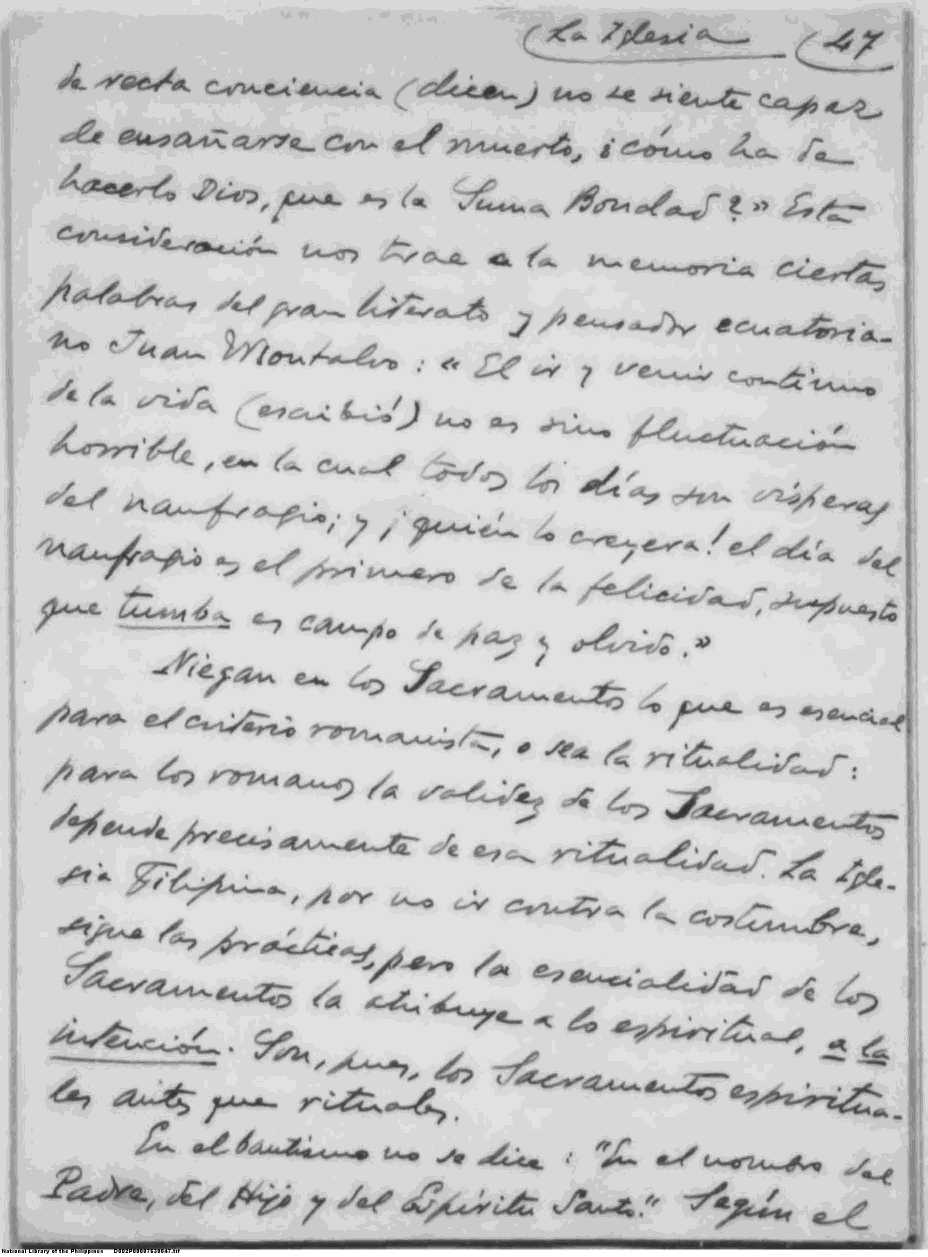 (La Iglesia (47
de recta conciencia (dicen) no se siente capaz
de ensañarse con el muerto, ¡cómo ha de
hacerlo Dios, que es la Suma Bondad?» Esta
consideración nos trae a la memoria ciertas
palabras del gran literato y pensador ecuatoria-
no Juan Montalvo: «El ir y venir continuo
de la vida (escribió) no es sino fluctuación
horrible, en la cual todos los días son vísperas
del naufragio; y ¡quién lo creyera! el día del
naufragio es el primero de la felicidad, supuesto
que tumba es campo de paz y olvido.»
Niegan en los Sacramentos lo que es esencial
para el criterio romanista, o sea la ritualidad:
para los romanos la validez de los Sacramentos
depende precisamente de esa ritualidad. La Igle-
sia Filipina, por no ir contra la costumbre,
sigue las prácticas, pero la esencialidad de los
Sacramentos la atribuye a lo espiritual, a la
intención. Son, pues, los Sacramentos espiritua-
les antes que rituales.
En el bautismo no se dice: "En el nombre del
Padre, del Hijo y del Espíritu Santo." Según el
National Library of the Philippines